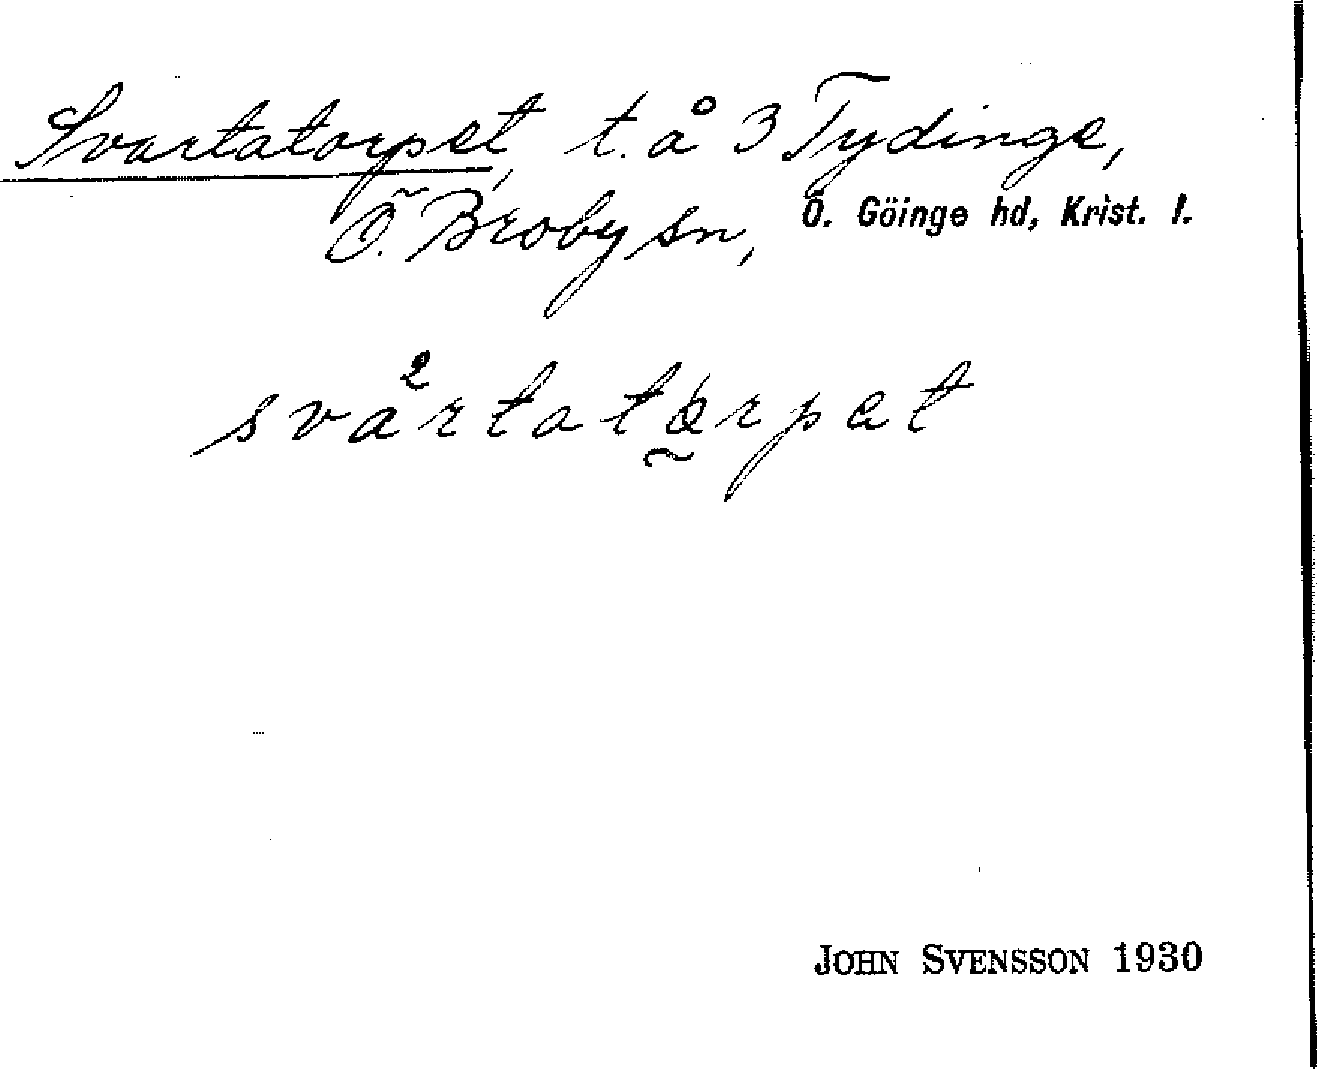 Svartatorpet, t. å 3 Tydinge,
Ö. Broby sn, Ö. Göinge hd, Krist. l.
svårtatɶrpet
JOHN SVENSSON 1930